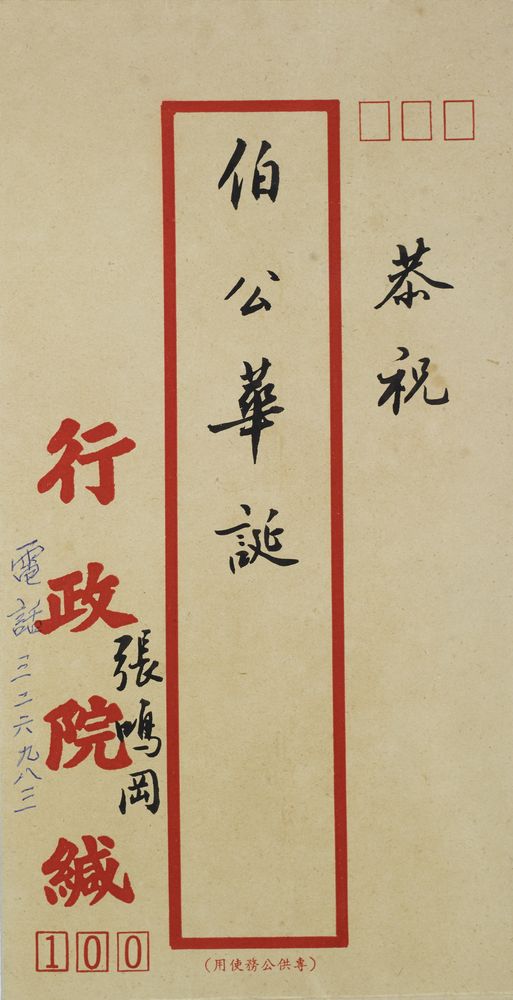 恭祝
伯公華誕
張鳴岡
行政院緘
電話三二六九八三一
100
(專供公務使用)